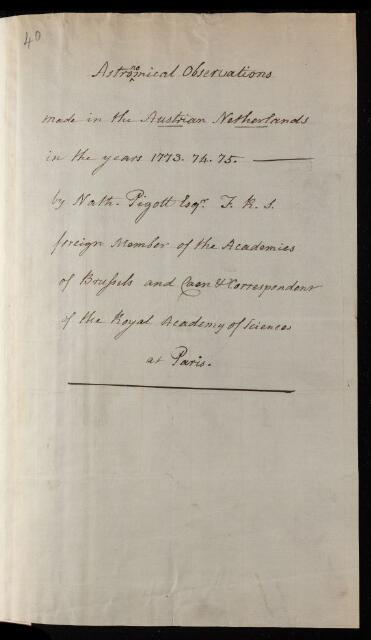 40
Astronomical Observations
made in the Austrian Netherlands
in the years 1773. 74. 75. —
by Nath. Pigott Esqr. F. R. S.
foreign Member of the Academies
of Brussels and Caen & Correspondent
of the Royal Academy of Sciences
at Paris.